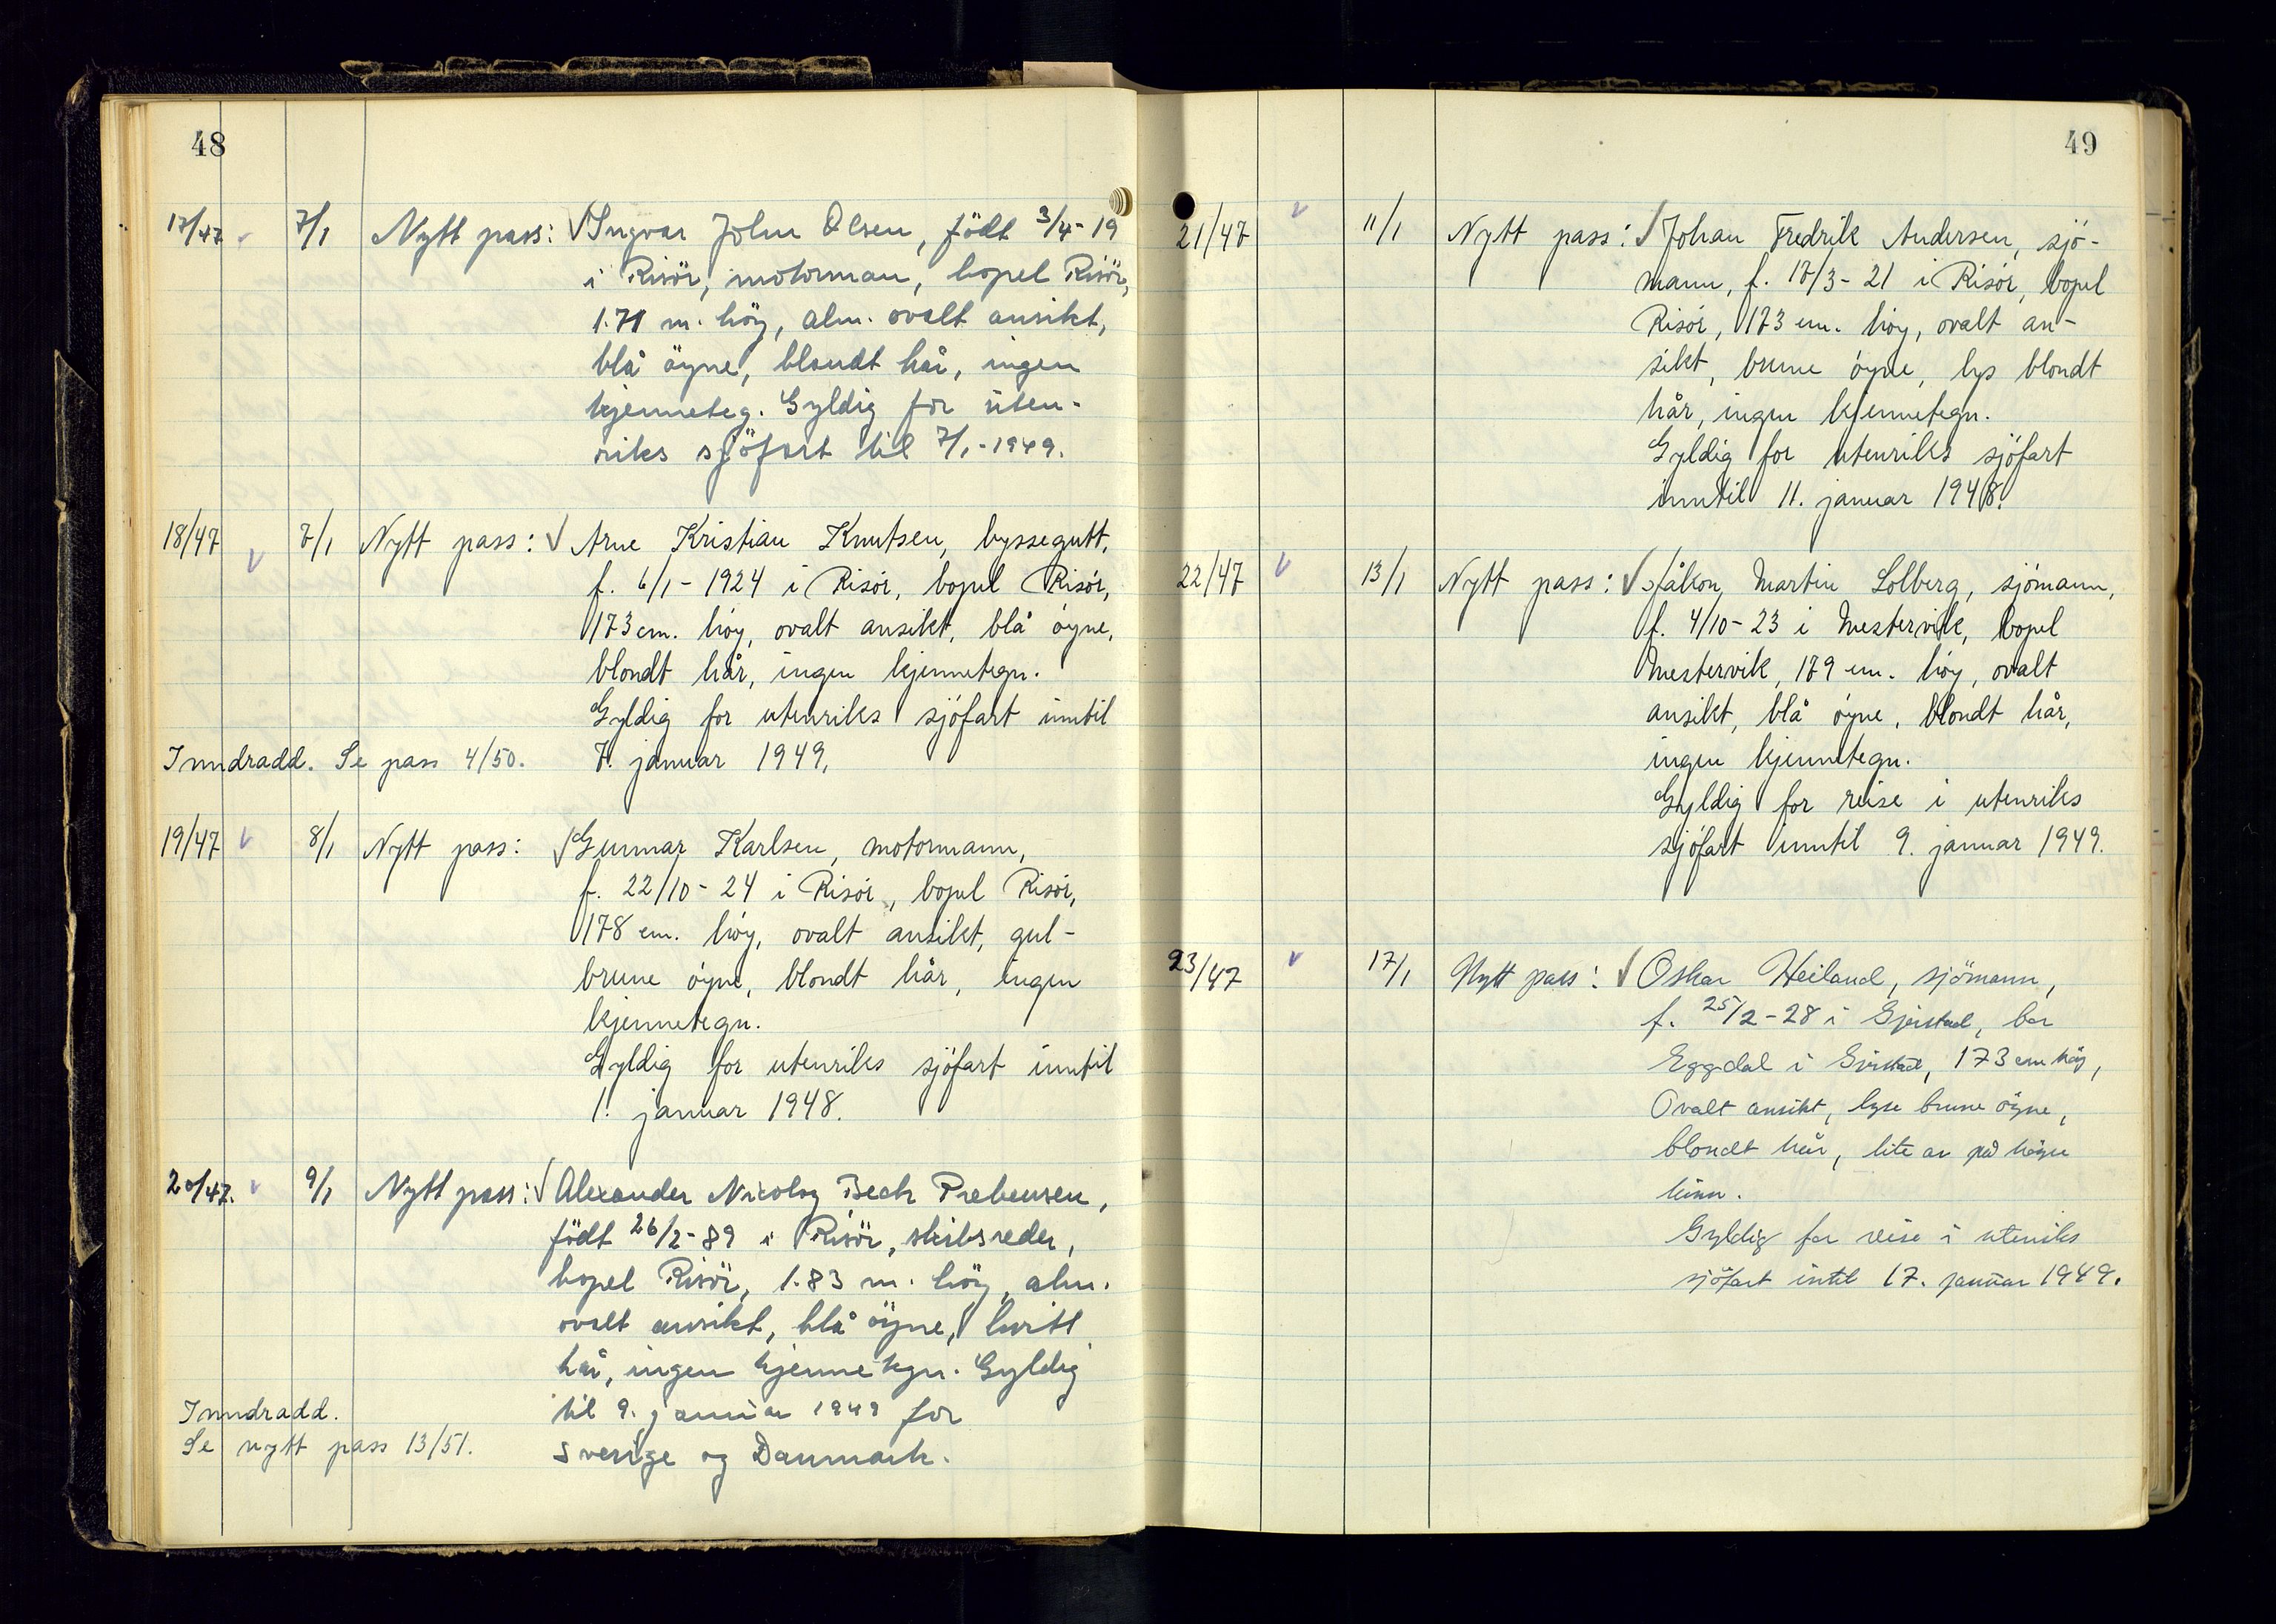 48
17/47 7/1 Nytt pass: Ingvar John Olsen, född 3/4-19
i Risör, motorman, bopel Risör,
1.71 m. höy, alm. ovalt ansikt,
blå öyne, blondt hår, ingen
kjenneteg. Gyldig for uten-
riks sjöfart til 7/1-1949.
18/47 7/1 Nytt pass: Arne Kristian Knutsen, byssegutt,
f. 6/1-1924 i Risör, bopel Risör,
173 cm. höy, ovalt ansikt, blå öyne,
blondt hår, ingen kjennetegn.
Gyldig for utenriks sjöfart inntil
Inndradd. Se pass 4/50. 7. januar 1949.
19/47 8/1 Nytt pass: Gunnar Karlsen, motormann,
f. 22/10-24 i Risör, bopel Risör,
178 cm. höy, ovalt ansikt, gul-
brune öyne, blondt hår, ingen
kjennetegn.
Gyldig for utenriks sjöfart inntil
1. januar 1948.
20/47. 9/1 Nytt pass: Alexander Nicolay Bech Prebensen,
födt 26/2-89 i Risör, skibsreder,
bopel Risör, 1.83 m. höy, alm.
ovalt ansikt, blå öyne, hvitt
hår, ingen kjennetegn. Gyldig
Inndradd. til 9. januar 1949 for
Se nytt pass 13/51. Sverige og Danmark.
49
21/47 11/1 Nytt pass: Johan Fredrik Andersen, sjö-
mann, f. 17/3-21 i Risör, bopel
Risör, 173 cm. höy, ovalt an-
sikt, brune öyne, lys blondt
hår, ingen kjennetegn.
Gyldig for utenriks sjöfart
inntil 11. januar 1948.
22/47 13/1 Nytt pass: Håkon Martin Solberg, sjömann,
f. 4/10-23 i Mestervik, bopel
Mestervik, 179 cm. höy, ovalt
ansikt, blå öyne, blondt hår,
ingen kjennetegn.
Gyldig for reise i utenriks
sjöfart inntil 9. januar 1949.
23/47 17/1 Nytt pass: Oskar Heiland, sjömann,
f. 25/2-28 i Gjerstad, bor
Eggdal i Gjerstad, 173 cm höy,
Ovalt ansikt, lyse brune öyne,
blondt hår, lite ar på höyre
kinn.
Gyldig for reise i utenriks
sjöfart intil 17. januar 1949.